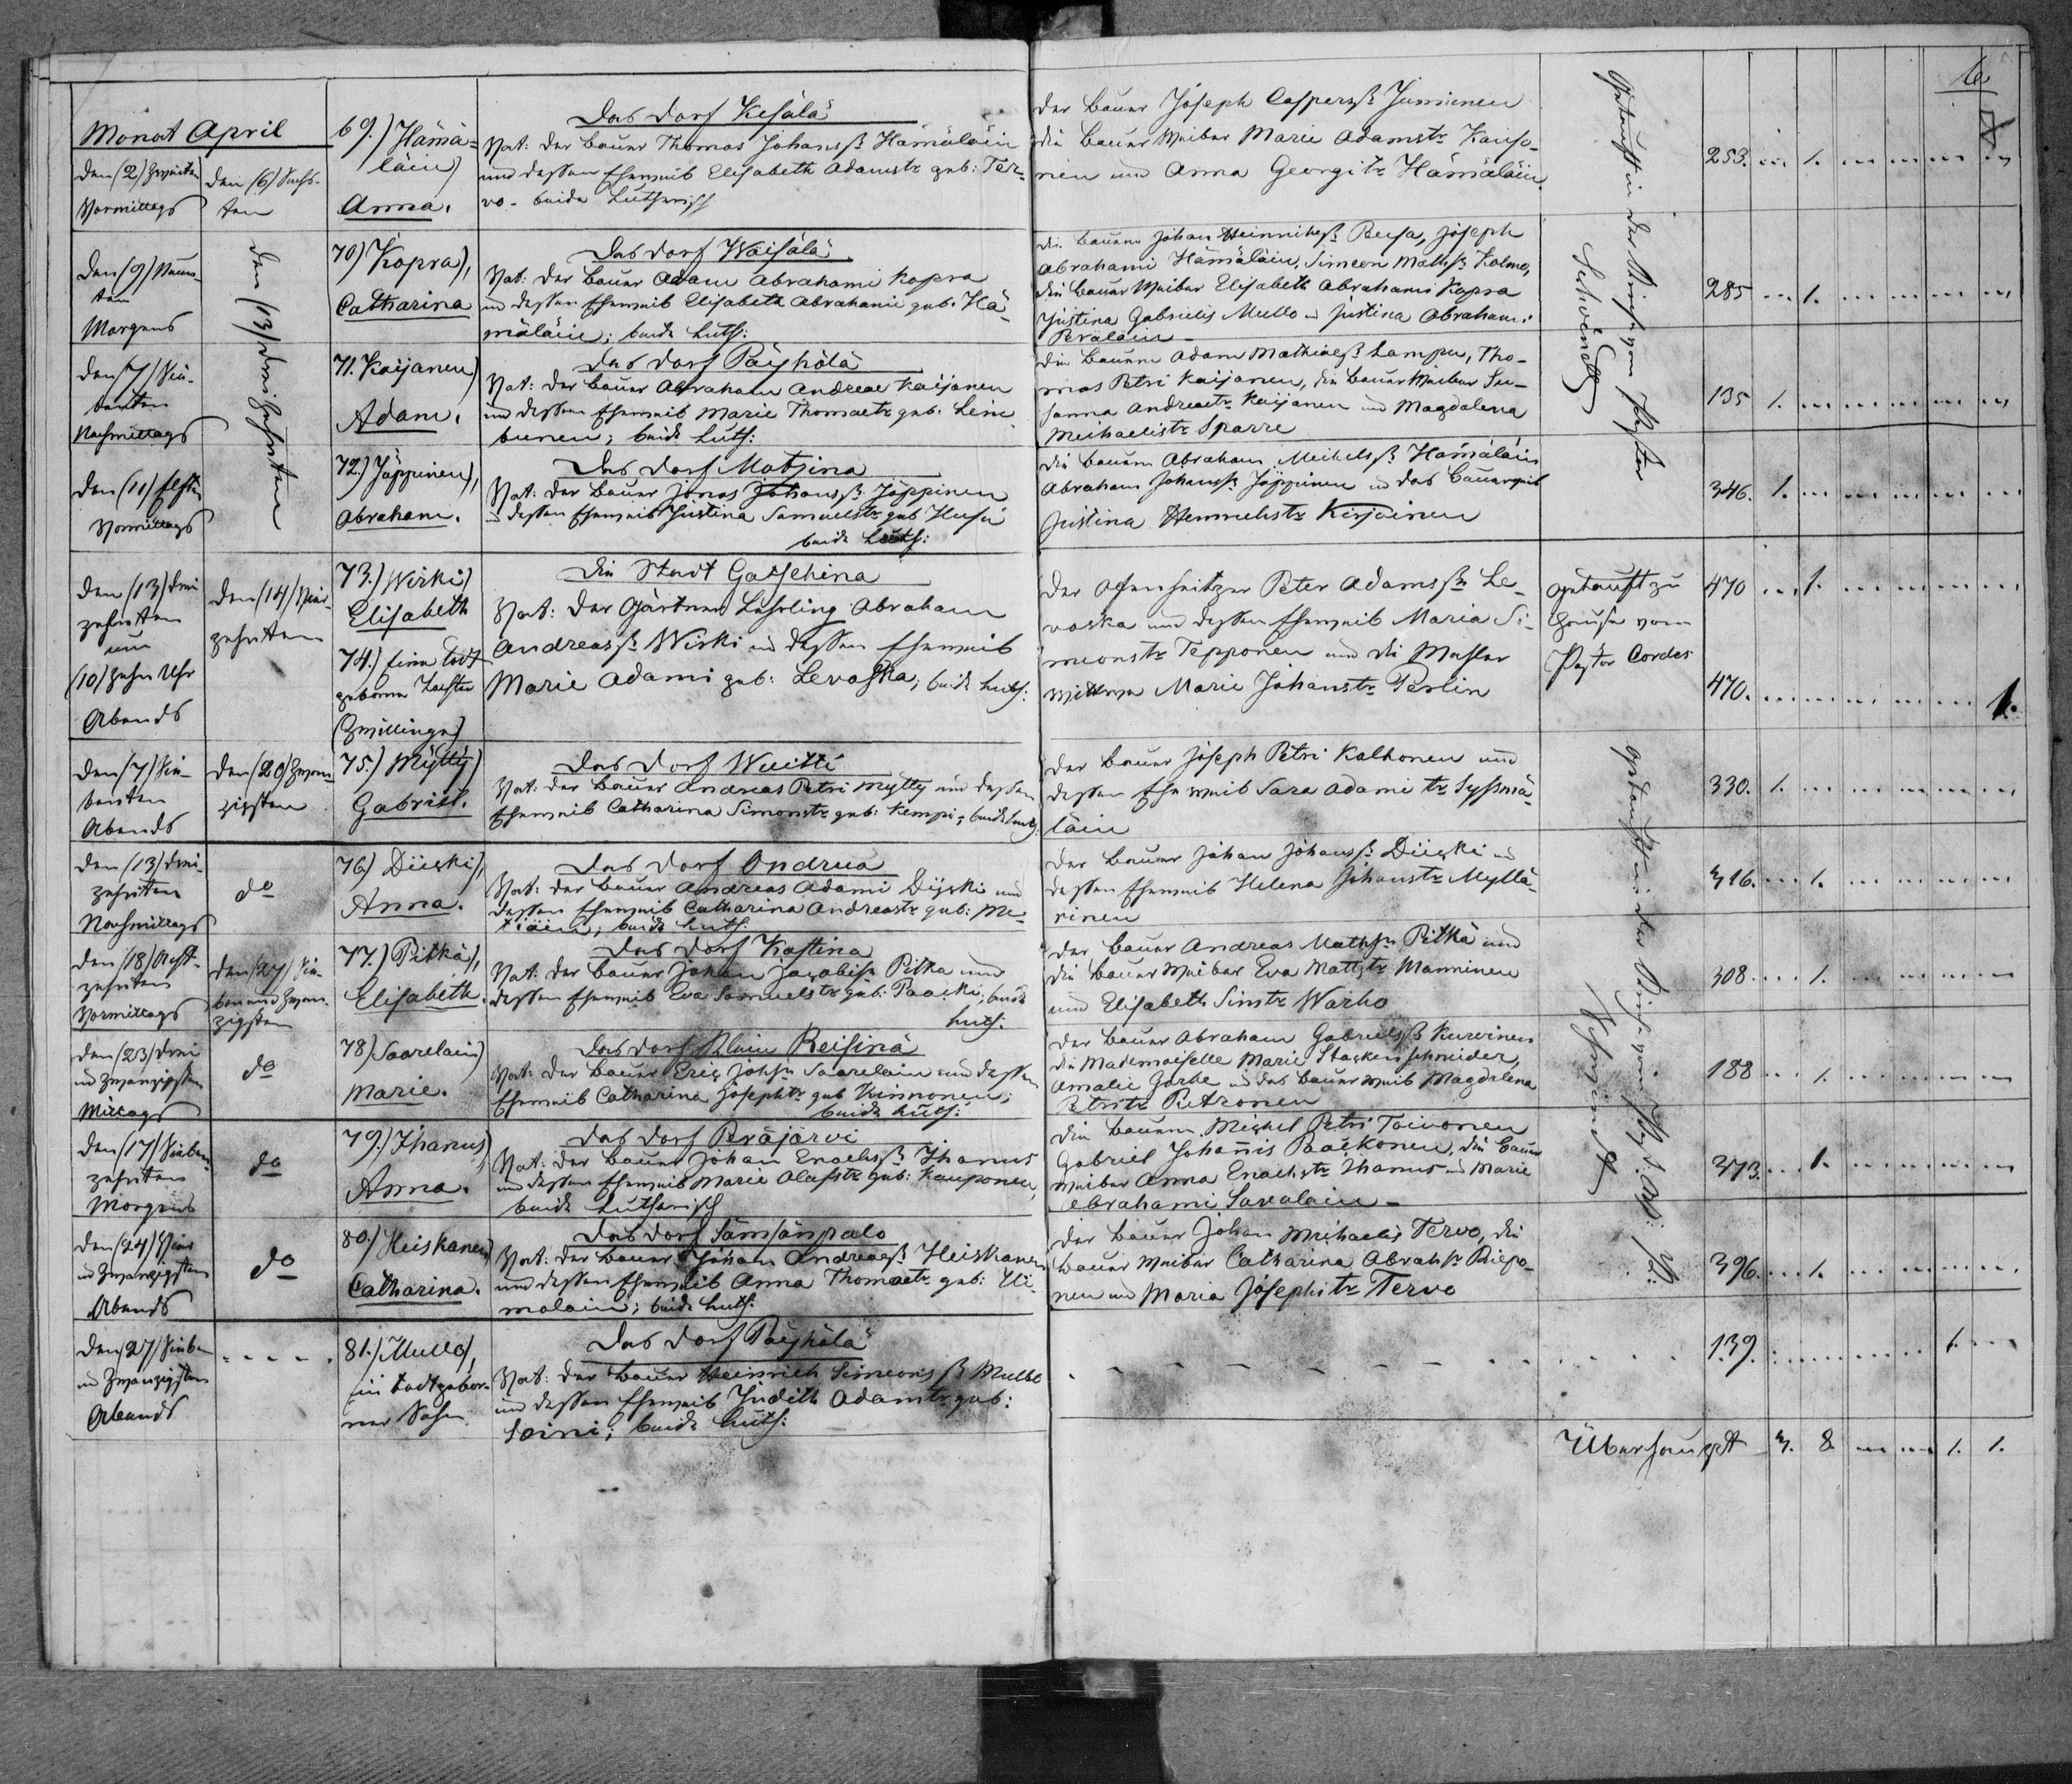 6
Monat April
den (2) Zweiten
Vormittags
den (6) Sechs-
ten
69.) Hämä-
läin)
Anna.
Das Dorf Kesälä
Vat: der Bauer Thomas Johansß Hämäläin
und dessen Eheweib Elisabeth Adamstr geb: Ter-
vo - beide Lutherisch
Der Bauer Joseph Caspersß
die Bauer Weiber Marie Adamstr
nen und Anna Georgitr Hämäläin
253. 1.
Getauft in der Kirche vom Pastor
Schwindt
den (9) Neun-
ten
Morgens
den (13) dreizehnten
70) Kopra),
Catharina
Das Dorf Waisälä
Vat: der Bauer Adam Abrahami Kopra
und dessen Eheweib Elisabeth Abrahami geb. Hä-
mäläin; beide Luth:
die Bauern Johan Heinrichsß Reisa, Joseph
Abrahami Hämäläin, Simeon Mathsß Kolmo,
die Bauer Weiber Elisabeth Abrahami Kopra
Justina Gabrielis Mullo u Justina Abrahami
Peraläin
285 1.
den (7) Sie-
benten
Nachmittags
71. Kaijanen)
Adam.
Das Dorf Päyhölä
Vat: der Bauer Abraham Andreae Kaijanen
und dessen Eheweib Marie Thomaetr geb. Lein
bunen; beide Luth:
Die Bauern Adam Mathiaesß Lampu, Tho-
mas Petri Kaijanen, die Bauer Weiber Su-
sanna Andreaetr Kaijanen und Magdalena
Meihaelistr Sparre
135 1.
den (11) Elften
Vormittags
72.) Jäppinen),
Abraham.
Das Dorf Matzina
Vat: der Bauer Jonas Johansß Jäppinen
u dessen Eheweib Justina Samuelstr geb Husu
beide Luth:
die Bauern Abraham Meihelsß Hämäläin
Abraham Johansß Jäppinen u das Bauerweib
Justina Henrichstr Kirjainen
346. 1.
den (13) drei
zehnten
um
(10) Zehn Uhr
Abends
den (14) Vier-
zehnten
73.) Wirki)
Elisabeth
74.) Eine todt
geborene Tochter
(Zwillinge)
Die Stadt Gatschina
Vat: der Gärtner Lehrling Abraham
Andreasß Wirki und dessen Eheweib
Marie Adami geb: Levaska; beide Luth:
Der Peter Adamsß Le-
vaska und dessen Eheweib Maria Si-
meonstr Tepponen und die
Wittwe Marie Johanstr Perlin
getauft zu
Hause vom
Pastor Cordes
470 1.
470. 1.
den (7) Sie-
benten
Abends
den (20) Zwan-
zigsten
75.) Mÿttÿ)
Gabriel.
Das Dorf Wuitti
Vat: der Bauer Andreas Petri Mytty und dessen
Eheweib Catharina Simonstr geb: Kempi; beide Luth:
der Bauer Joseph Petri Kalhonen und
dessen Eheweib Sara Adami tr Syssmä-
läin
330. 1.
getauft in der Kirche vom Past:
Schwindt
den (13) drei-
zehnten
Nachmittags
do
76) Düski),
Anna.
Das Dorf Ondrua
Vat: der Bauer Andreas Adami Düski und
dessen Eheweib Catharina Andreastr geb: Me-
tiäin; beide Luth:
der Bauer Johan Johansß Düski und
dessen Eheweib Helena Johanstr Myllä-
rinen
416. 1.
den (18) Acht-
zehnten
Vormittags
den (27) Sie-
ben und Zwan-
zigsten
77.) Pitkä),
Elisabeth.
Das Dorf Kastina
Vat: der Bauer Johan Jacobisß Pitka und
dessen Eheweib Eva Samuelstr geb: Paaski; beide
Luth:
der Bauer Andreas Mathsß Pitkä und
die Bauer Weiber Eva Mattstr Manninen
und Elisabeth Simtr Warho
308. 1.
den (23) drei
und Zwanzigsten
Mittags
do
78) Saarelain)
Marie.
Das Dorf Klein Reisinä
Vat: der Bauer Eric Johsß Saarelain und dessen
Eheweib Catharina Josephtr geb Kinnonen;
beide Luth:
der Bauer Abraham Gabrielsß Kurvinen
die Mademoiselle Marie Stackenschneider,
Amalie Garbe und das Bauerweib Magdalena
Petritr Petronen
188 1.
den (17) Sieben-
zehnten
Morgens
do
79.) Ihanus)
Anna.
Das Dorf Peräjärvi
Vat: der Bauer Johan Enochsß Ihanus
und dessen Eheweib Marie Olafstr geb: Kauponen,
beide Lutherisch
die Bauern Michel Petri Toivonen
Gabriel Johannis Paakonen, die Bauer
Weiber Anna Enochstr Ihanus und Marie
Abrahami Savolain
373. 1.
den (24) Vier
und Zwanzigsten
Abends
do
80.) Heiskanen)
Catharina.
Das Dorf Sämsänpalo
Vat: der Bauer Johan Andreaesß Heiskanen
und dessen Eheweib Anna Thomaetr geb: Hi-
malain; beide Luth:
der Bauer Johan Michaelis Tervo, die
Bauer Weiber Catharina Abrahtr Riepo-
nen und Maria Josephitr Tervo
396. 1.
den (27) Sieben
und Zwanzigsten
Abends
81.) Mullo),
ein todtgebor-
ner Sohn
Das Dorf Päyhölä
Vat: der Bauer Heinrich Simeonisß Mullo
und dessen Eheweib Judith Adamtr geb:
Soini; beide Luth:
139. 1.
Überhaupt 4. 8. 1. 1.